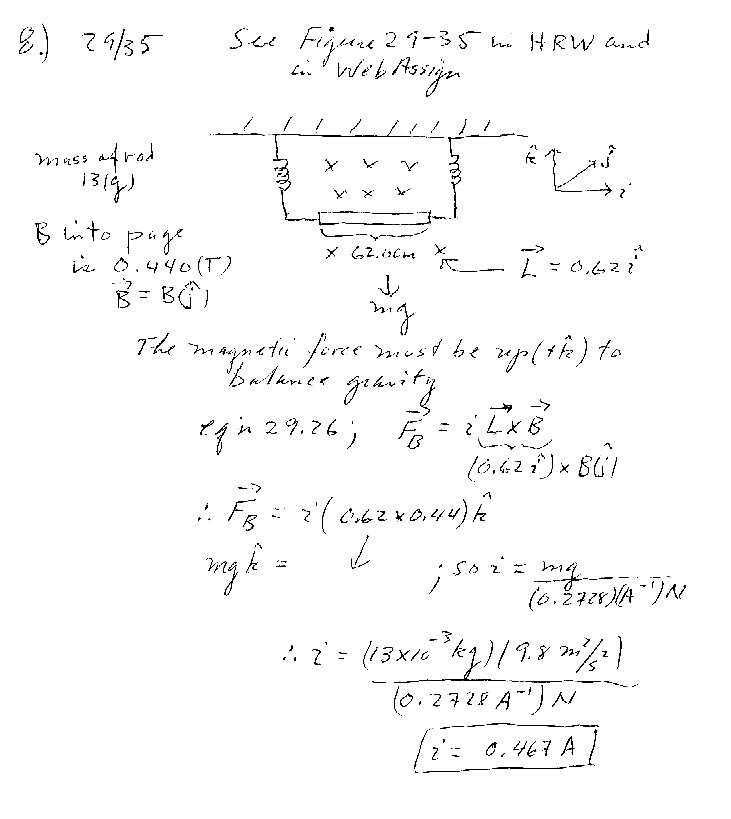 8.) 29/35 See Figure 29-35 in HRW and
in WebAssign
mass of rod
13(g)
B into page
is 0.440(T)
B⃗ = B(ĵ)
x x x
x x x
k̂ ĵ î
x 62.0cm x
L⃗ = 0.62 î
mg
The magnetic force must be up (+k̂) to
balance gravity
eq'n 29.26; F⃗_B = i L⃗ x B⃗
(0.62 î) x B(ĵ)
∴ F⃗_B = i(0.62 x 0.44) k̂
mg k̂ = ↓ ; so i = mg / (0.2728)(A⁻¹)N
∴ i = (13x10⁻³ kg)(9.8 m/s²) / (0.2728 A⁻¹)N
i = 0.467 A